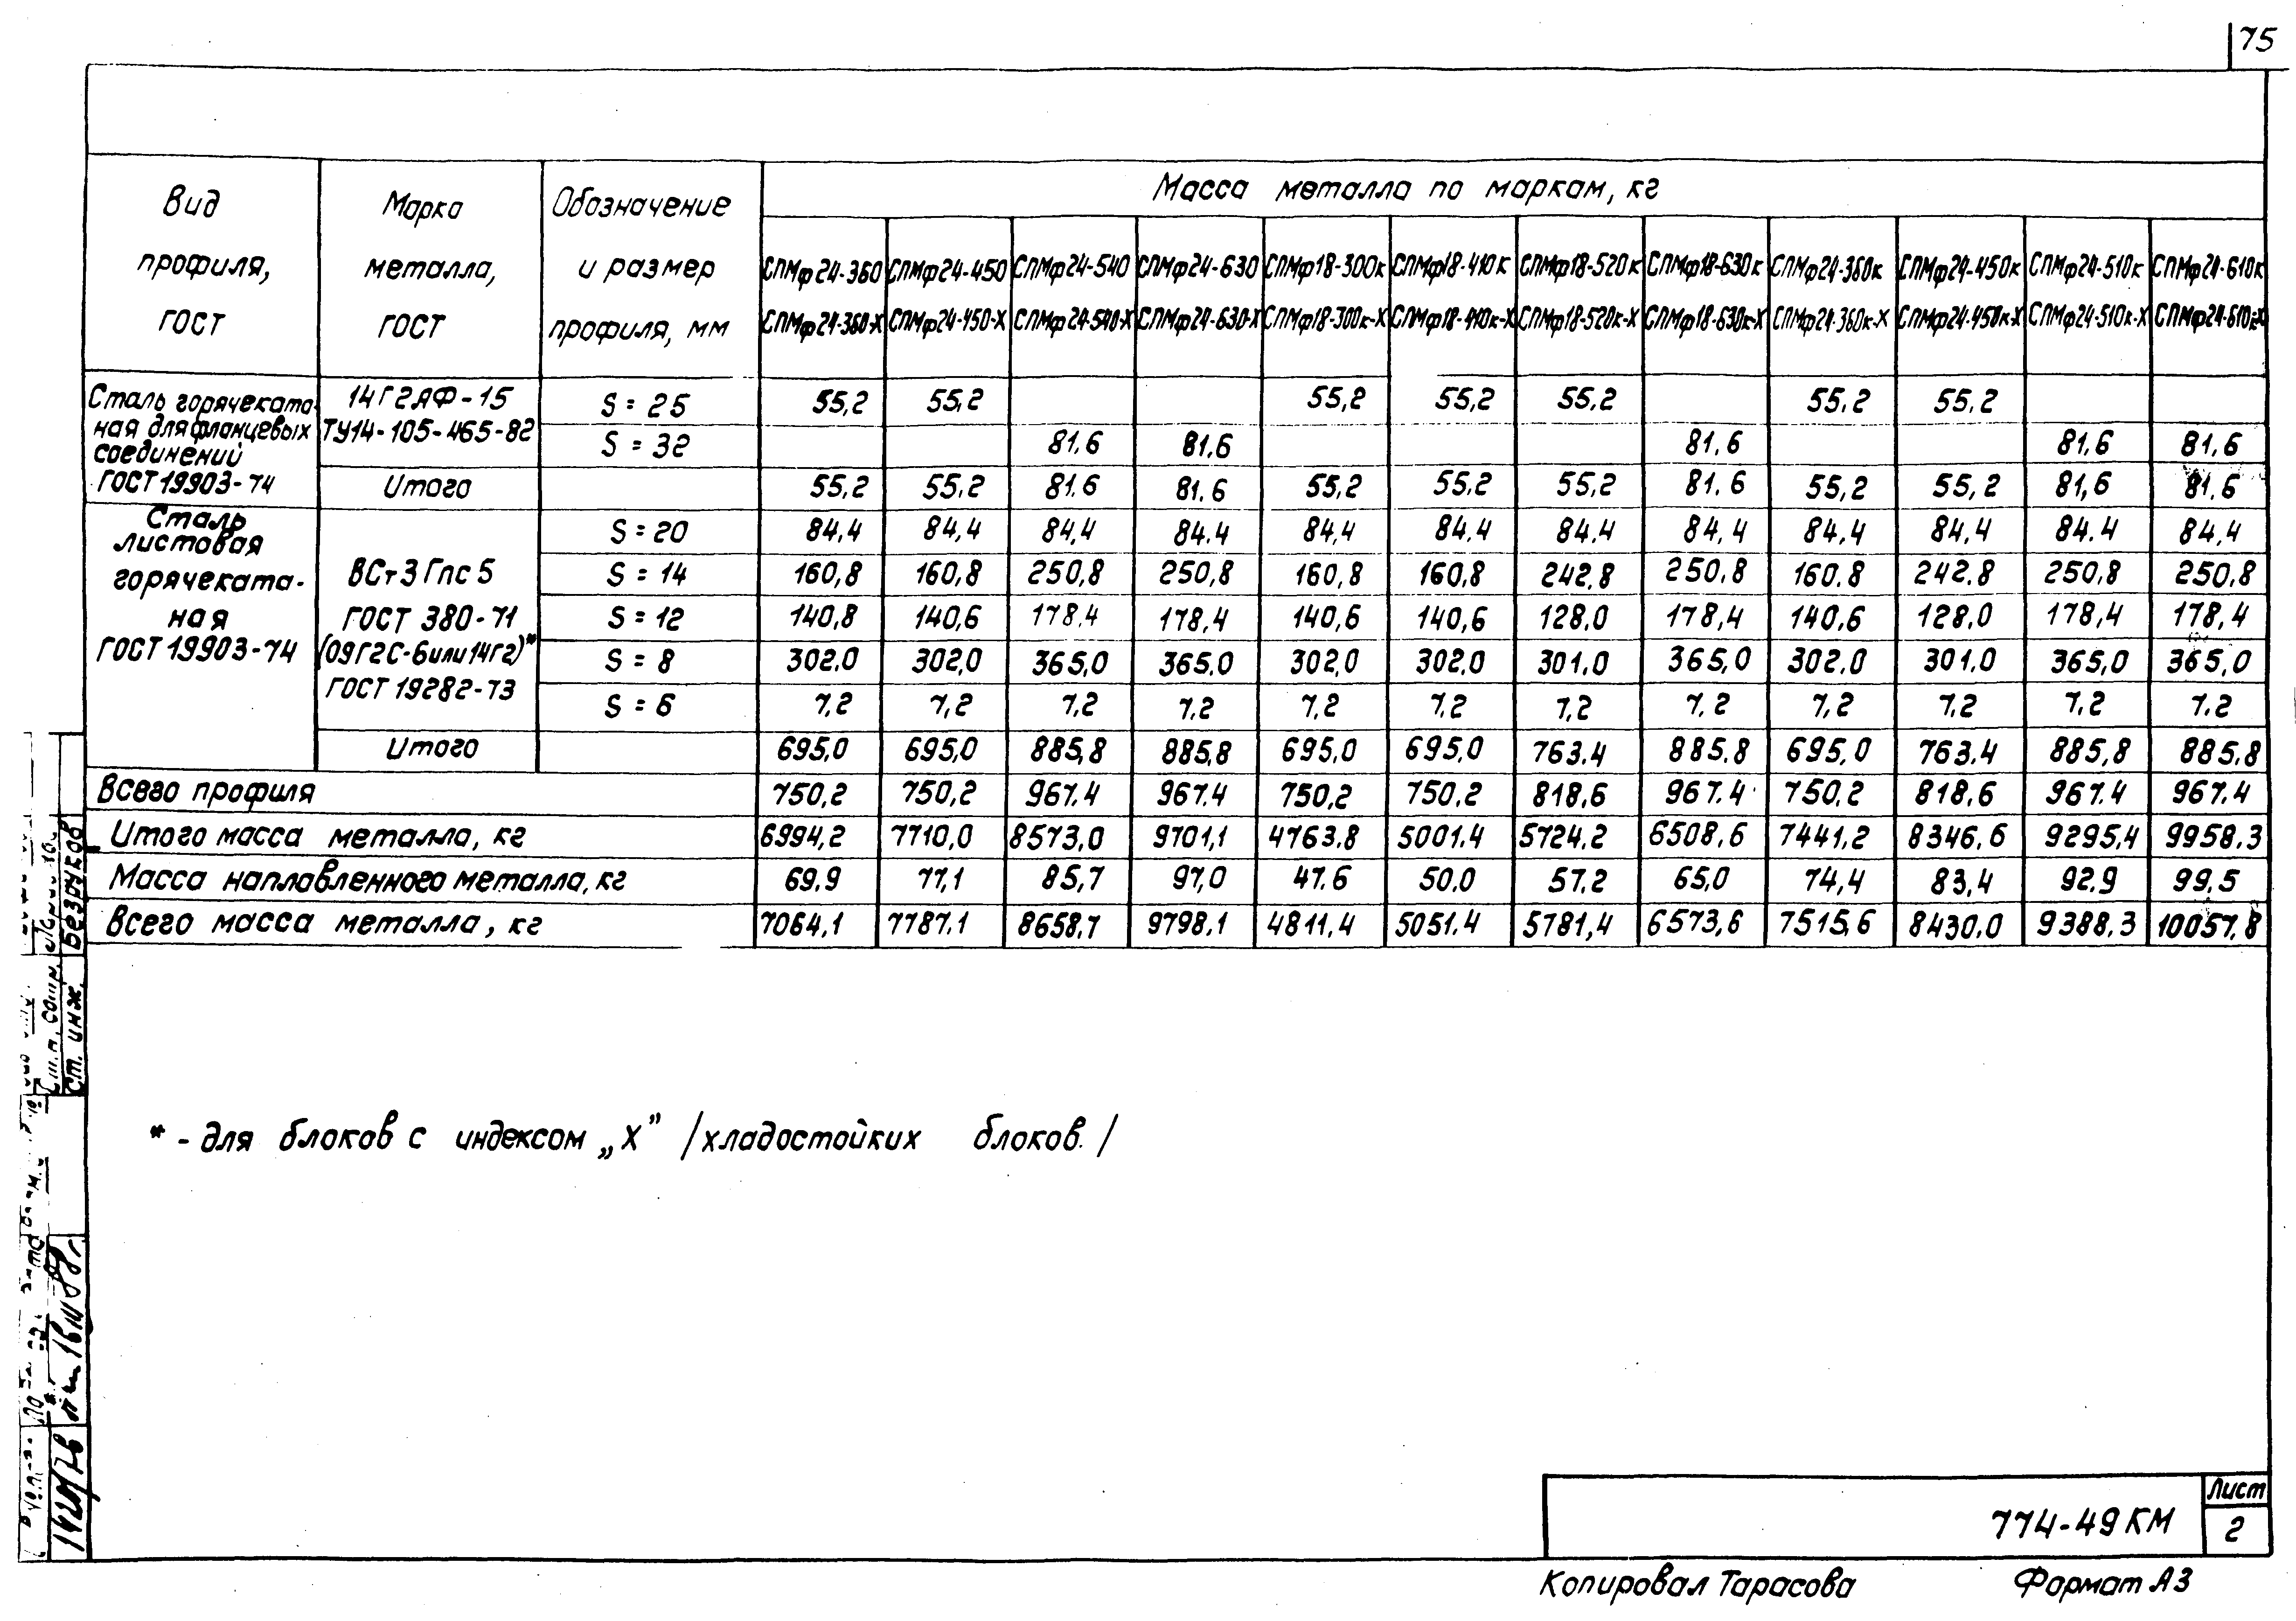 75
Вид профиля, ГОСТ | Марка металла, ГОСТ | Обозначение и размер профиля, мм | Масса металла по маркам, кг
СПМф24-360 СПМф24-450 СПМф24-540 СПМф24-630 СПМф18-300к СПМф18-410к СПМф18-520к СПМф18-630к СПМф24-360к СПМф24-450к СПМф24-510к СПМф24-610к
СПМф24-360-Х СПМф24-450-Х СПМф24-540-Х СПМф24-630-Х СПМф18-300к-Х СПМф18-410к-Х СПМф18-520к-Х СПМф18-630к-Х СПМф24-360к-Х СПМф24-450к-Х СПМф24-510к-Х СПМф24-610к-Х
Сталь горячеката-
ная для фланцевых
соединений
ГОСТ 19903-74
14Г2АФ-15
ТУ14-105-465-82
S=25 55,2 55,2 55,2 55,2 55,2 55,2 55,2
S=32 81,6 81,6 81,6 81,6 81,6
Итого 55,2 55,2 81.6 81.6 55,2 55,2 55,2 81.6 55,2 55,2 81,6 81.6
Сталь
листовая
горячеката-
ная
ГОСТ 19903-74
ВСт3Гпс5
ГОСТ 380-71
(09Г2С-6 или 14Г2)*
ГОСТ 19282-73
S=20 84,4 84,4 84,4 84.4 84,4 84.4 84.4 84,4 84,4 84,4 84.4 84,4
S=14 160,8 160,8 250,8 250,8 160,8 160,8 242.8 250.8 160.8 242.8 250,8 250,8
S=12 140,8 140,6 178,4 178,4 140,6 140,6 128.0 178,4 140.6 128,0 178,4 178,4
S=8 302.0 302,0 365,0 365.0 302,0 302.0 301.0 365,0 302.0 301.0 365,0 365,0
S=6 7,2 7,2 7,2 7,2 7,2 7,2 7,2 7.2 7,2 7.2 7,2 7.2
Итого 695,0 695,0 885,8 885,8 695,0 695,0 763.4 885.8 695,0 763.4 885,8 885.8
Всего профиля 750,2 750,2 967.4 967.4 750,2 750,2 818,6 967.4 750.2 818,6 967.4 967.4
Итого масса металла, кг 6994,2 7710,0 8573,0 9701,1 4763.8 5001.4 5724.2 6508,6 7441,2 8346.6 9295,4 9958.3
Масса наплавленного металла, кг 69.9 77,1 85,7 97,0 47.6 50.0 57.2 65,0 74,4 83,4 92.9 99,5
Всего масса металла, кг 7064,1 7787,1 8658,7 9798,1 4811,4 5051.4 5781,4 6573,6 7515,6 8430.0 9388,3 10057,8
* - для блоков с индексом „Х” /хладостойких блоков./
Ст. инж. Безруков
774-49КМ
Лист
2
Копировал Тарасова Формат А3